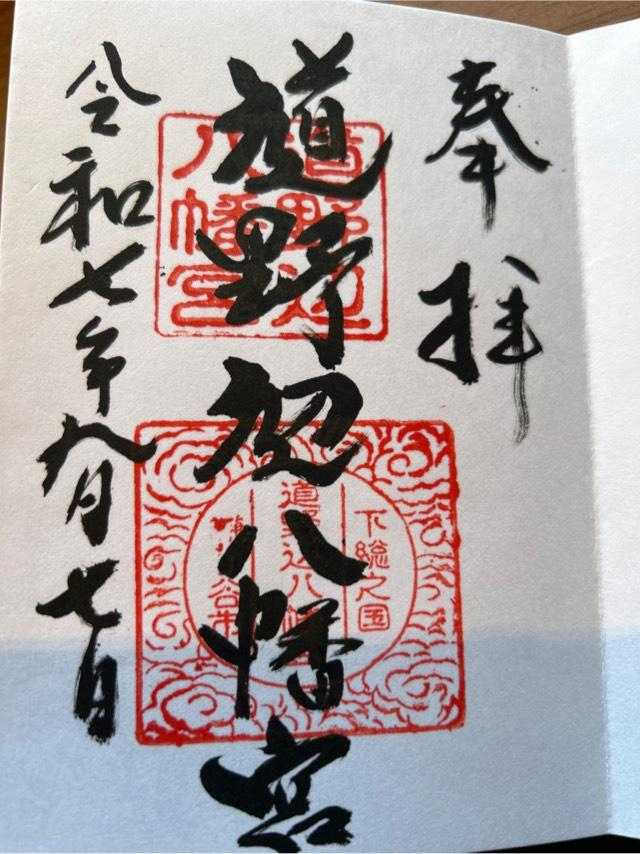 奉拝
道野辺八幡宮
令和七年九月七日
道野辺八幡宮
下総之国
道野辺八幡宮
鎌ヶ谷市